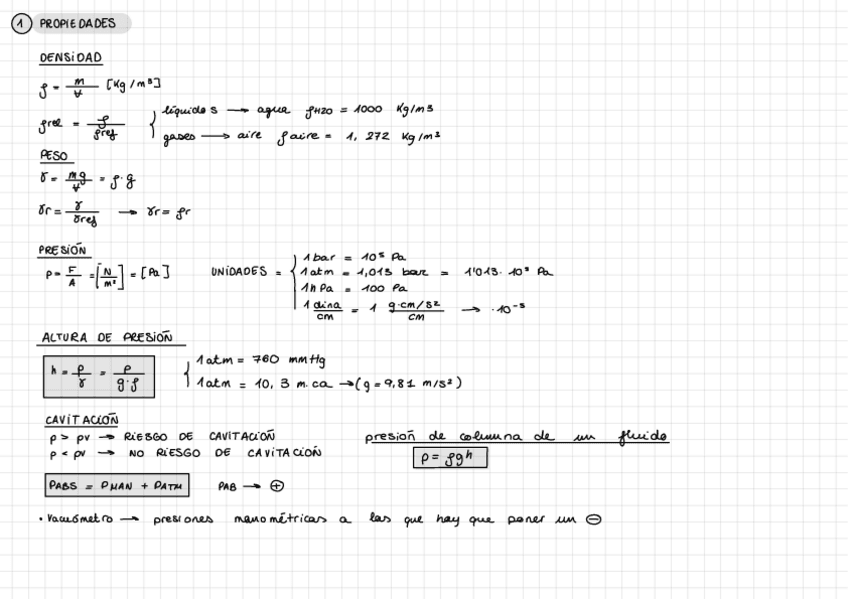 1 PROPIEDADES
DENSIDAD
ρ = m/V [Kg/m³]
ρrel = ρ/ρref { líquidos → agua ρH2O = 1000 Kg/m3
gases → aire ρaire = 1,272 Kg/m³
PESO
γ = mg/V = ρ·g
γr = γ/γref → γr = ρr
PRESIÓN
P = F/A = [N/m²] = [Pa] UNIDADES = { 1 bar = 10⁵ Pa
1 atm = 1,013 bar = 1'013·10⁵ Pa
1 hPa = 100 Pa
1 dina/cm = 1 g·cm/s²/cm → ·10⁻⁵
ALTURA DE PRESIÓN
h = P/γ = P/g·ρ { 1 atm = 760 mmHg
1 atm = 10,3 m.ca → (g = 9,81 m/s²)
CAVITACIÓN
p > pv → RIESGO DE CAVITACIÓN
p < pv → NO RIESGO DE CAVITACIÓN
presión de columna de un fluido
P = ρgh
PABS = PMAN + PATM PAB → ⊕
• Vacuómetro → presiones manométricas a las que hay que poner un ⊖